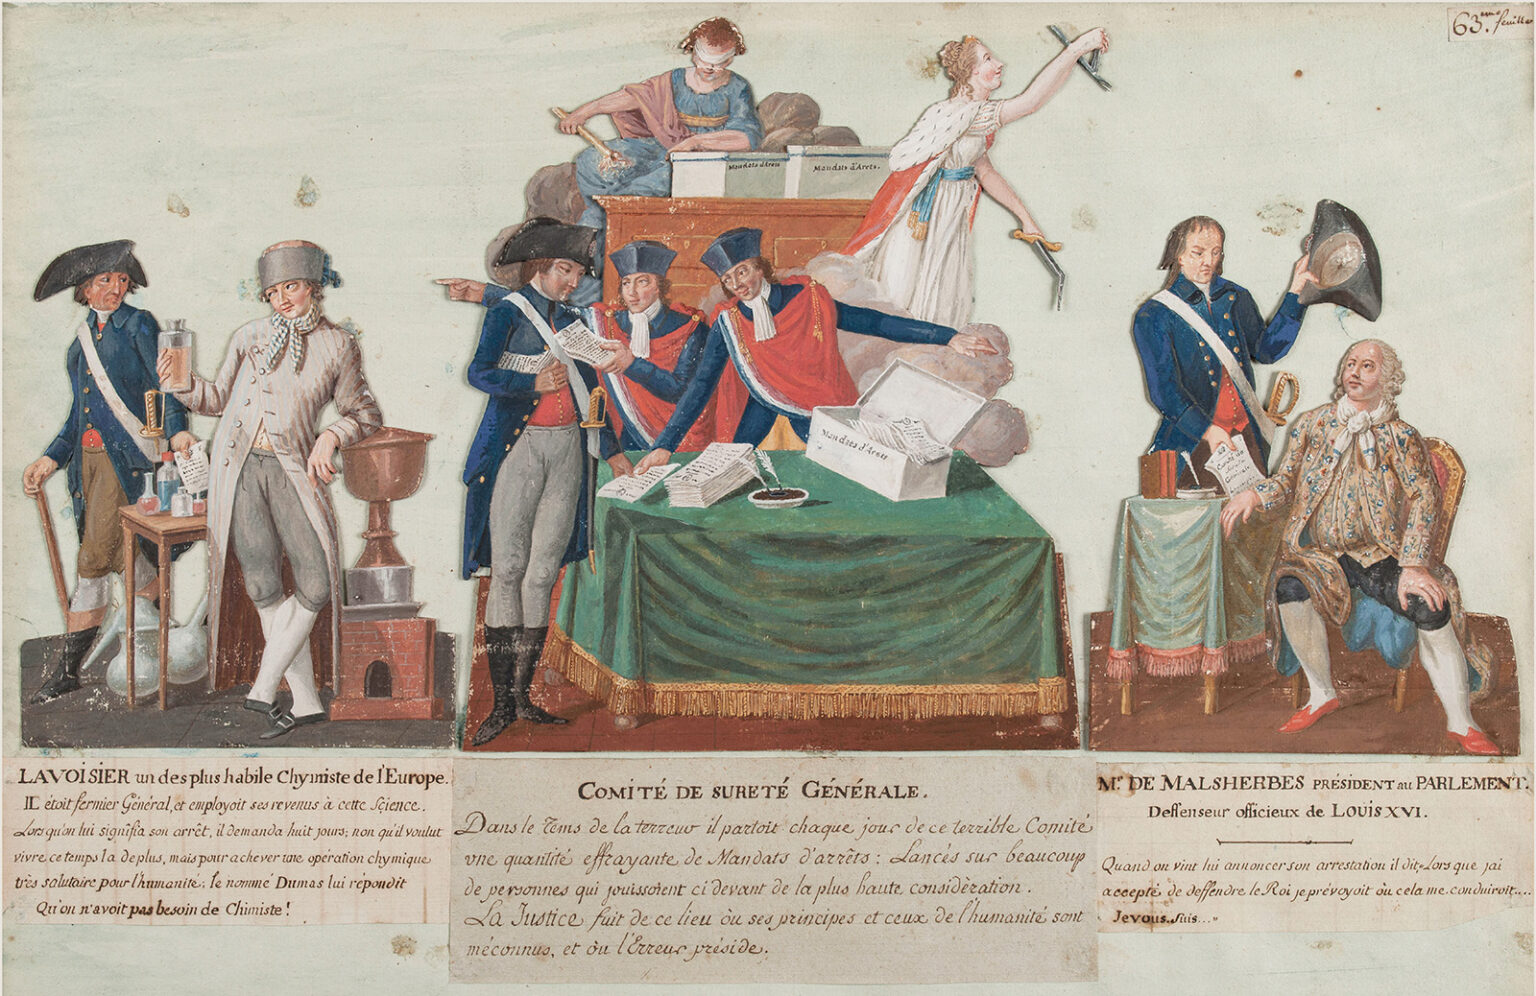 63.eme feuille
Mandats d'Arets
Mandats d'Arets.
Mandats d'Arets
Comité de
LAVOISIER un des plus habile Chymiste de l'Europe.
IL étoit fermier Général, et employoit ses revenus à cette Science.
Lorsqu'on lui signifia son arrêt, il demanda huit jours; non qu'il voulut
vivre ce temps la de plus, mais pour achever une opération chymique
très salutaire pour l'humanité; le nommé Dumas lui répondit
Qu'on n'avoit pas besoin de Chimiste!
COMITÉ DE SURETÉ GÉNÉRALE.
Dans le Tems de la terreur il partoit chaque jour de ce terrible Comité
une quantité effrayante de Mandats d'arrêts: Lancés sur beaucoup
de personnes qui jouissoient ci devant de la plus haute considération.
La Justice fuit de ce lieu où ses principes et ceux de l'humanité sont
méconnus, et où l'Erreur préside.
Mr. DE MALSHERBES PRÉSIDENT au PARLEMENT.
Deffenseur officieux de LOUIS XVI.
Quand on vint lui annoncer son arrestation il dit, Lors que jai
accepté de deffendre le Roi je prévoyoit où cela me conduiroit....
Je vous Suis...»